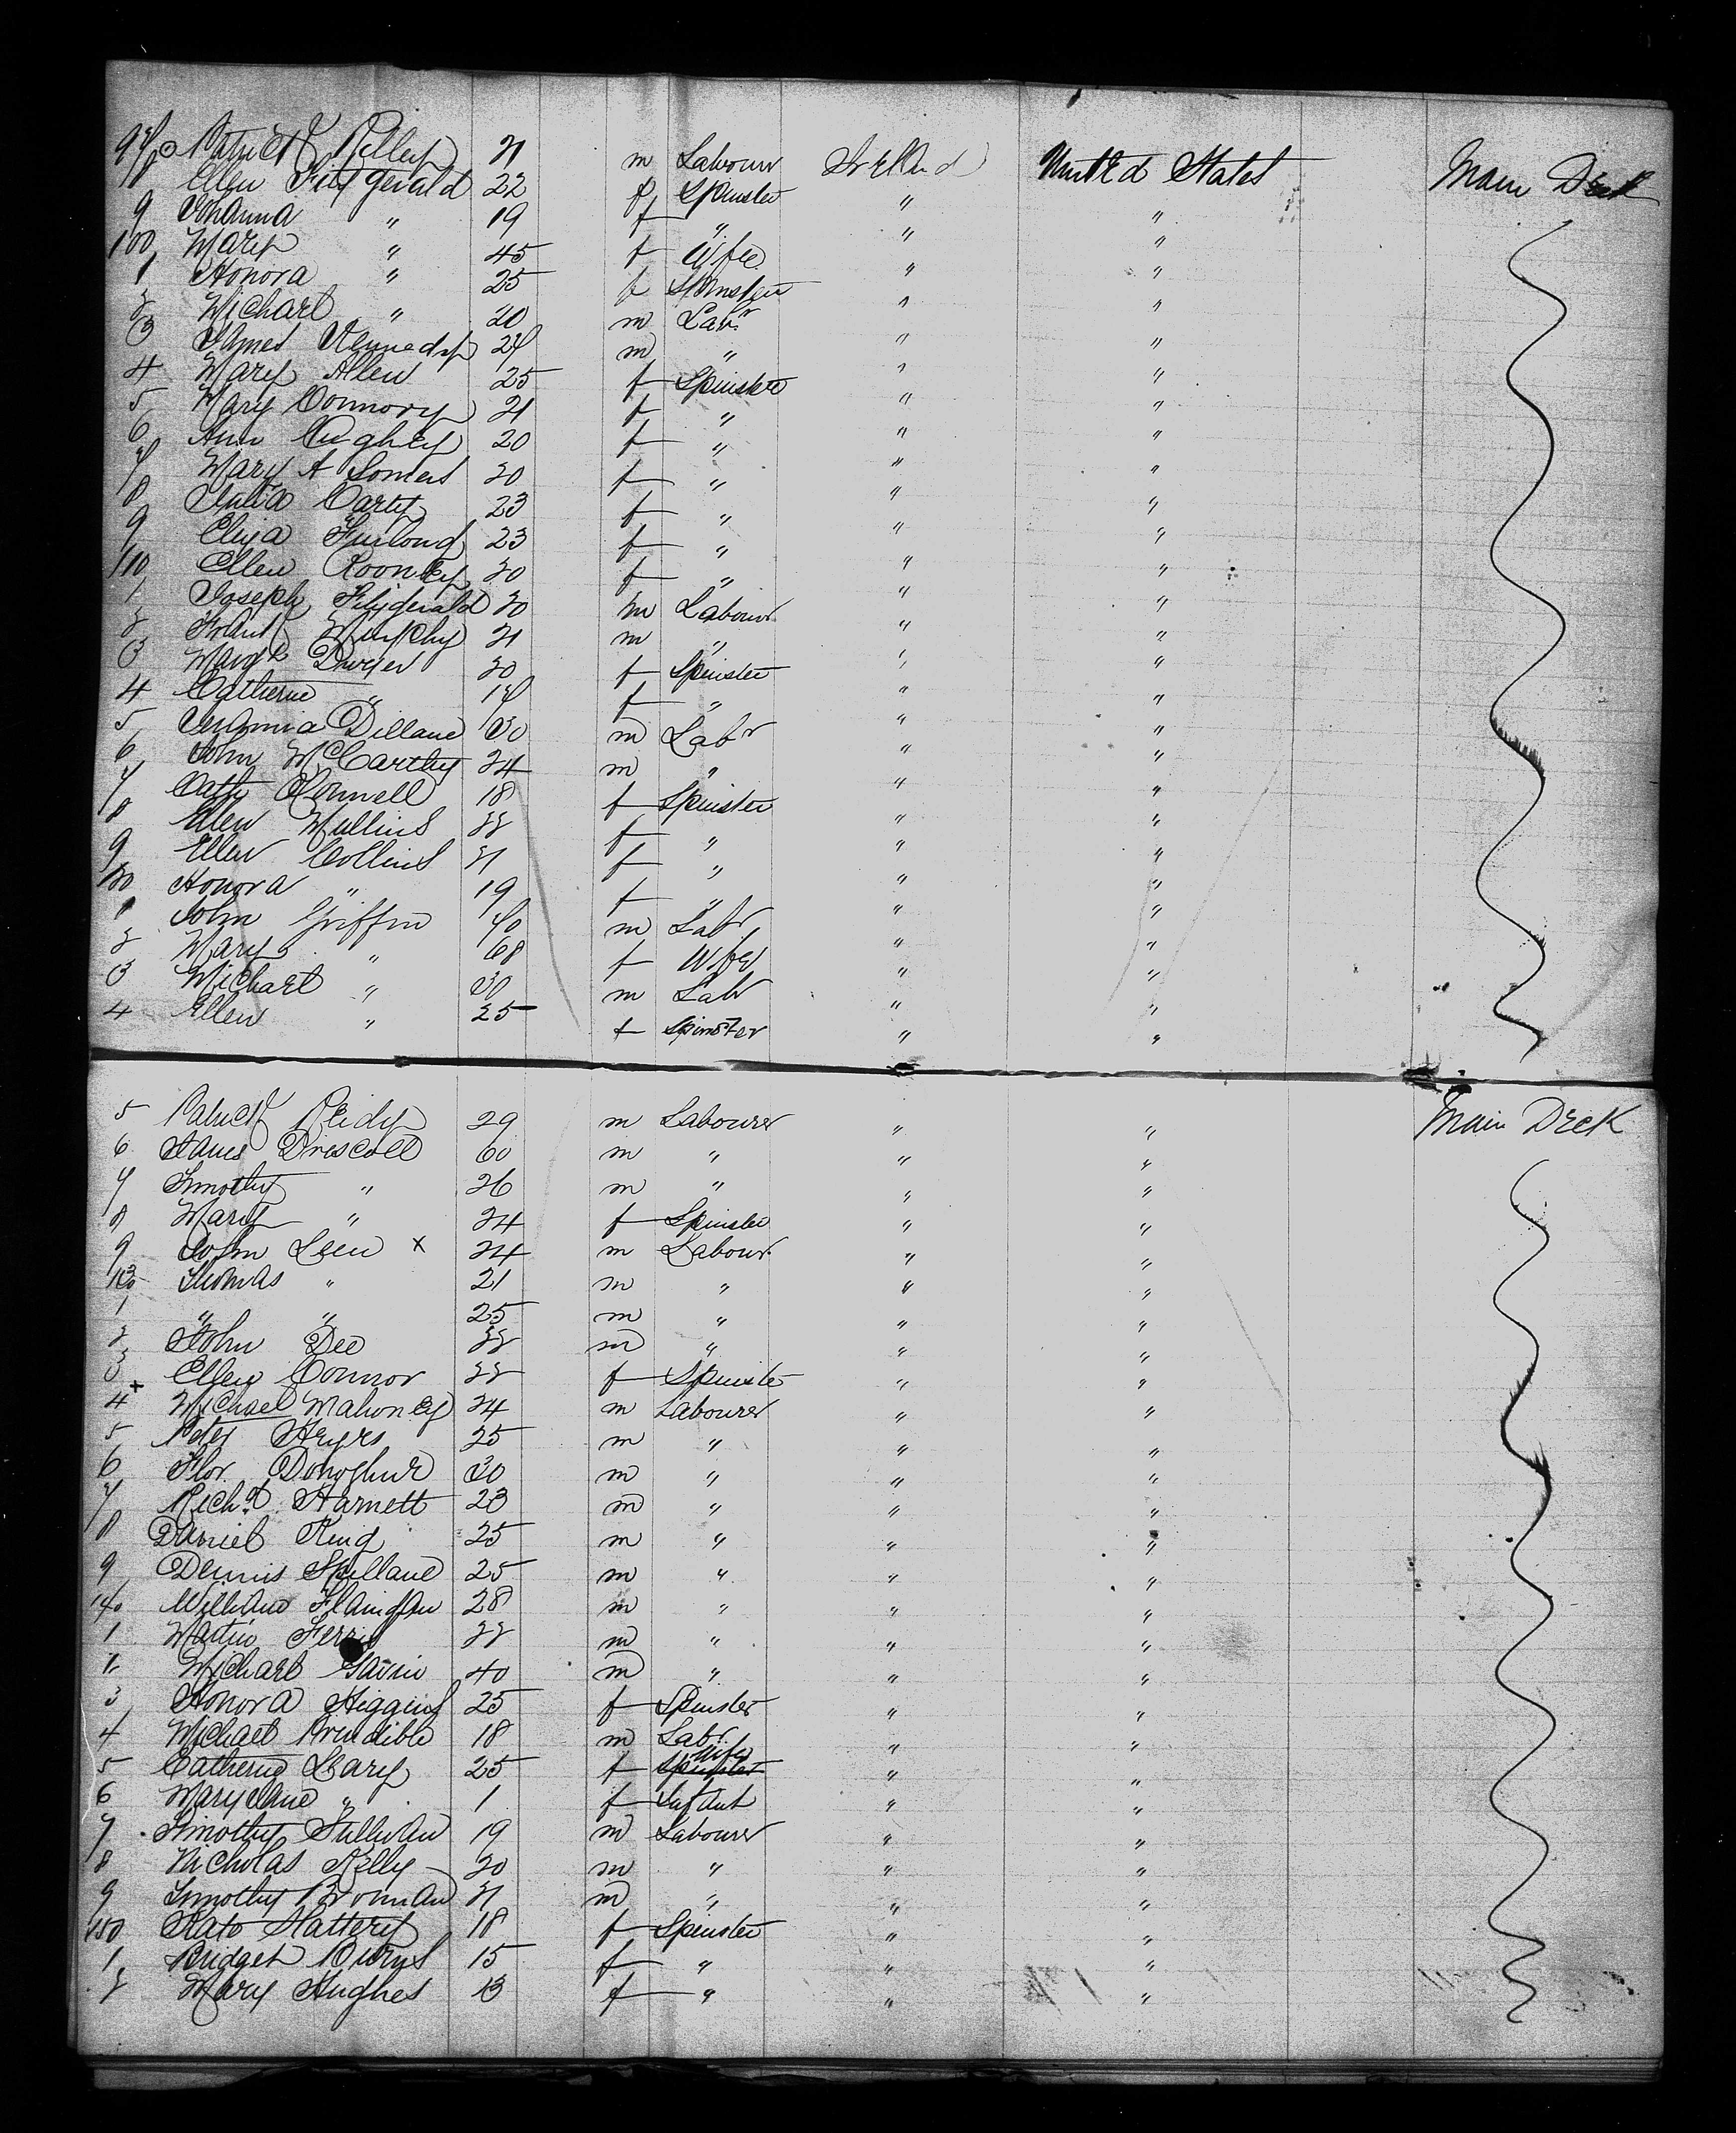 97 Patrick Kelly 21 m Labour Ireland United States Main Deck
8 Ellen Fitzgerald 22 f Spinster " "
9 Johanna " 19 f " " "
100 Mary " 45 f Wife " "
1 Honora " 25 f Spinster " "
2 Michael " 20 m Labr " "
3 James Kennedy 27 m " " "
4 Mary Allen 25 f Spinster " "
5 Mary Connory 21 f " " "
6 Ann 20 f " " "
7 Mary A Somers 20 f " " "
8 Julia Carty 23 f " " "
9 Eliza Furlong 23 f " " "
110 Ellen Rooney 20 f " " "
1 Joseph Fitzgerald 20 m Labour " "
2 Frank Murphy 21 m " " "
3 Margt Dwyer 20 f Spinster " "
4 Catherine " 17 f " " "
5 Dillane 30 m Labr " "
6 John McCarthy 24 m " " "
7 Cath OConnell 18 f Spinster " "
8 Ellen Mullins 22 f " " "
9 Ellen Collins 21 f " " "
120 Honora " 19 f " " "
1 John Griffin 70 m Labr " "
2 Mary " 68 f Wife " "
3 Michael " 30 m Labr " "
4 Ellen " 25 f Spinster " "
5 Patrick Reidy 29 m Labourer " " Main Deck
6 James Driscoll 60 m " " "
7 Timothy " 26 m " " "
8 Mary " 24 f Spinster " "
9 John Leen x 24 m Labour " "
130 Thomas " 21 m " " "
1 " " 25 m " " "
2 John Dee 22 m " " "
3 Ellen Connor 22 f Spinster " "
4 + Michael Mahoney 24 m Labourer " "
5 Peter 25 m " " "
6 Flor Donoghue 30 m " " "
7 Richd Harnett 23 m " " "
8 Daniel King 25 m " " "
9 Dennis Spillane 25 m " " "
140 William Flanigan 28 m " " "
1 Martin Ferris 22 m " " "
2 Michael Gavin 40 m " " "
3 Honora Higgins 25 f Spinster " "
4 Michael Prendible 18 m Labr " "
5 Catherine Leary 25 f Spinster Wife " "
6 Mary Jane " 1 f Infant " "
7 Timothy Sullivan 19 m Labourer " "
8 Nicholas Kelly 20 m " " "
9 Timothy Brosnan 21 m " " "
150 Kate Slattery 18 f Spinster " "
1 Bridget Burns 15 f " " "
2 Mary Hughes 13 f " " "